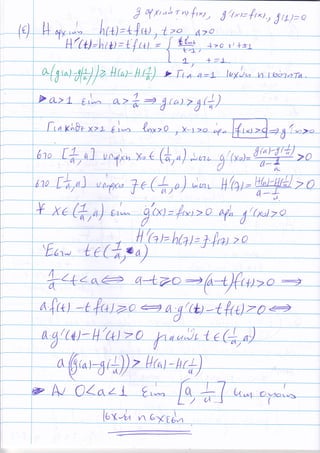 g αρχική του f(x), g'(x)=f(x), g(1)=0
(ε) Η αρχική h(t)=t f(t), t>0 a>0
H'(t)=h(t)=t f(t) = { t lnt / t-1, t>0 t≠1
1, t=1
a(g(a)-g(1/a)) ≥ H(a)-H(1/a) Για a=1 ισχύει η ισότητα.
a>1 είναι a>1/a ⇒ g(a)>g(1/a)
Για κάθε x>1 είναι lnx>0, x-1>0 άρα f(x)>0 ⇒ g'(x)>0.
στο [1/a, a] υπάρχει x₀∈(1/a, a) ώστε g'(x₀)= g(a)-g(1/a) / a-1/a >0
στο [1/a, a] υπάρχει ξ∈(1/a, a) ώστε H'(ξ)= H(a)-H(1/a) / a-1/a >0
∀ x∈(1/a, a) είναι g'(x)=f(x)>0 άρα g'(x₀)>0
H'(ξ)=h(ξ)=ξ f(ξ)>0
Έστω t∈(1/a, a)
1/a<t<a ⇔ a-t>0 ⇒ (a-t)f(t)>0 ⇒
a f(t) - t f(t)>0 ⇔ a g'(t) - t f(t)>0 ⇔
a g'(t) - H'(t)>0 για κάθε t∈(1/a, a)
a(g(a)-g(1/a)) > H(a)-H(1/a)
Αν 0<a<1 είναι [a, 1/a] και ομοίως
ισχύει η σχέση.